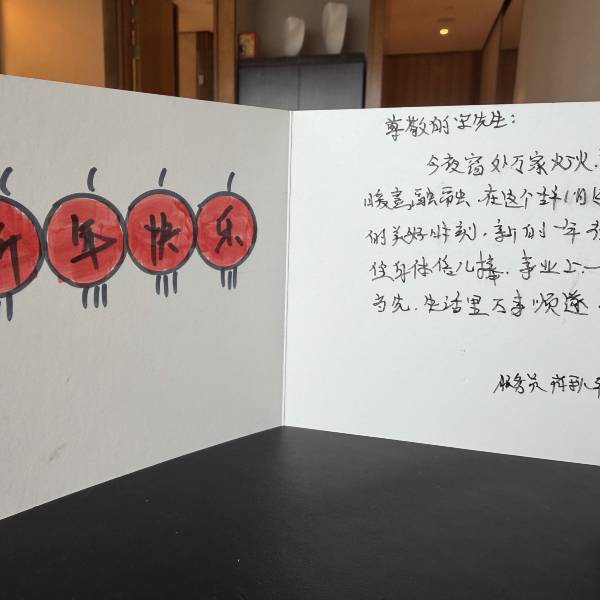 新年快乐
尊敬的宋先生：
今夜窗外万家灯火，
暖意融融，在这个
的美好时刻，新的一年
住身体倍儿棒，事业上一
当先，生活里万事顺遂
服务员